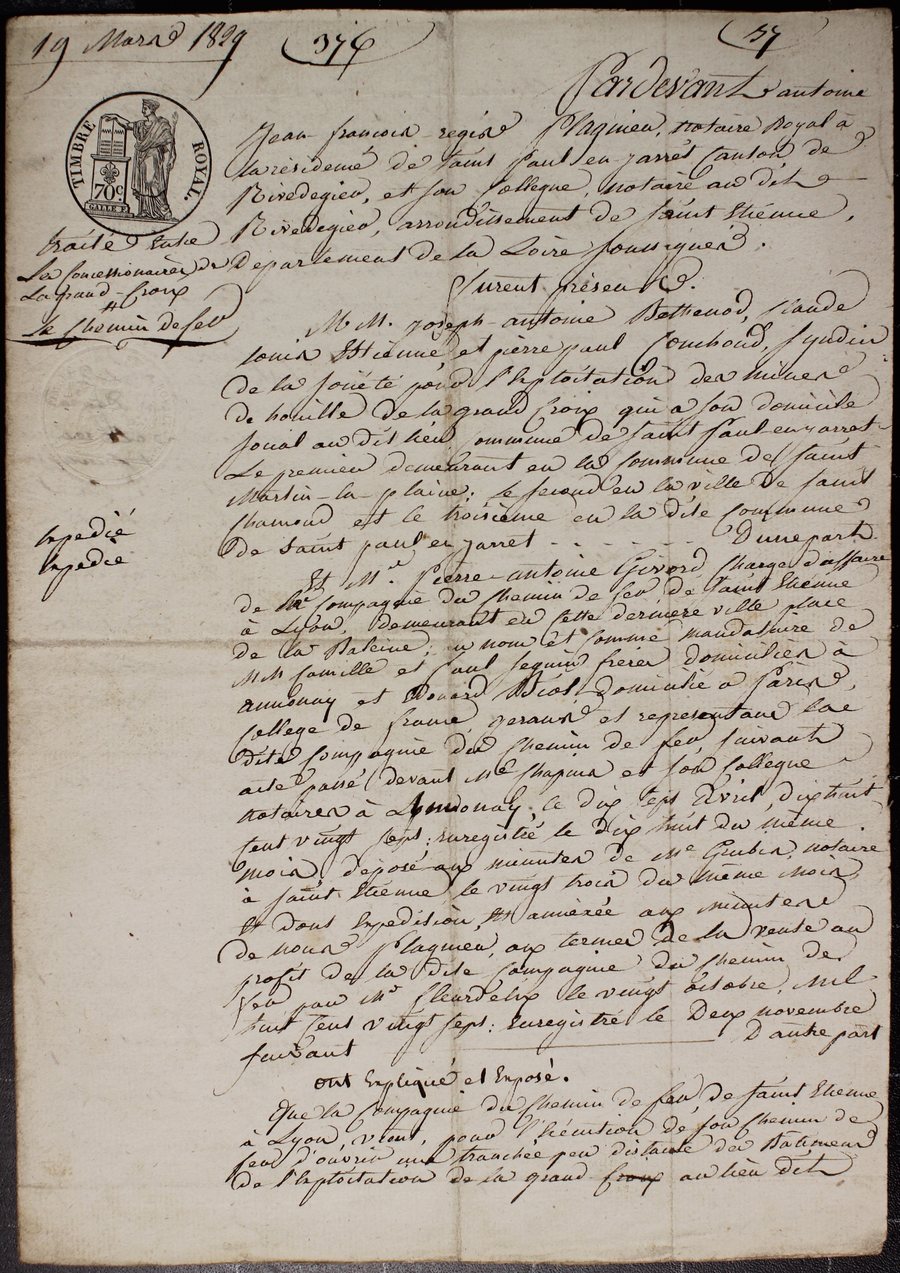 19 Mars 1829
376
57
TIMBRE ROYAL.
70c
Traité Entre
Les Concessionaires de
La Grand-Croix
Et
Le Chemin de fer
Expedié
Expedié
Pardevant antoine
Jean-françois-regis Plagnieu, notaire Royal à
la résidence de Saint Paul en jarrêt Canton de
Rivedegier, et son Collegue, notaire au dit
Rivedegier, arrondissement de Saint Etienne,
Département de la Loire soussignés.
Furent présens.
M.M. joseph-antoine Bethenod, Claude
Louis Etienne et pierre paul Couchoud, Syndics
de la société pour l'Exploitation des mines
de houille de la grand Croix qui a son domicile
social au dit lieu commune de Saint Paul en jarret
Le premier demeurant en la Commune de Saint
Martin-la-plaine; Le second en la ville de Saint
Chamond et le troisième en la dite Commune
de Saint paul en jarret - - - - - - D'une part
Et Mr. Pierre-antoine Givord Chargé d'affaire
de la Compagnie du Chemin de fer de Saint Etienne
à Lyon, demeurant en Cette dernière ville place
de la Baleine; au nom et comme mandataire de
MM Camille et Paul Seguin frères domiciliés à
annonay et Edouard Biot domicilié à Paris,
College de france, gerans et representans la
dite Compagnie du Chemin de fer suivant
acte passé devant Me Chapuis et son Collegue
notaires à Annonay le dix sept avril dix huit
cent vingt sept; Enregistré le dix huit du même
mois, déposé aux minutes de Me Grubis, notaire
à Saint Etienne le vingt trois du même mois
Et dont Expedition est annexée aux minutes
de nous Plagnieu, aux termes de la vente au
profit de la dite Compagnie du Chemin de
fer par Mr Fleurdelix le vingt octobre, mil
huit cent vingt sept; Enregistré le Deux novembre
suivant D'autre part
ont Expliqué et Exposé.
Que la Compagnie du Chemin de fer de Saint Etienne
à Lyon, vient, pour l'Exécution de son Chemin de
fer d'ouvrir une tranchée peu distante des Bâtimens
de l'Exploitation de la grand Croix au lieu dit